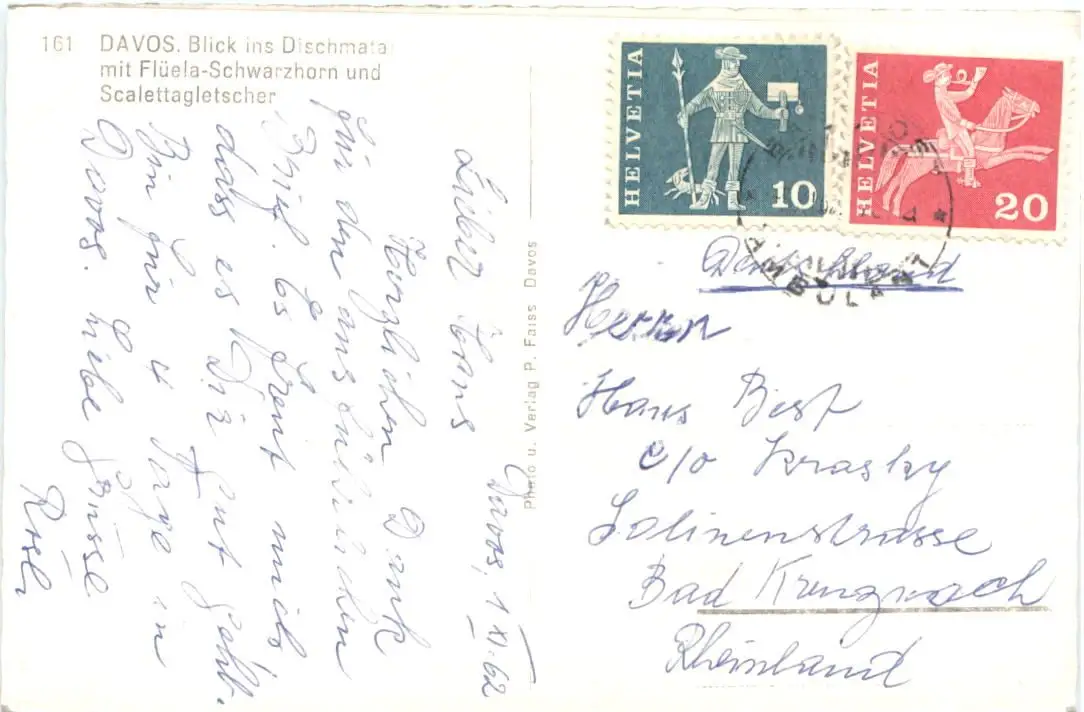 161 DAVOS. Blick ins Dischmatal
mit Flüela-Schwarzhorn und
Scalettagletscher
Davos, 1. XI. 62
Lieber Hans
Herzlichen Dank
für den ausführlichen
Brief. Es freut mich,
dass es Dir gut geht.
Bin für 4 Tage in
Davos. Liebe Grüsse
Rösli
Photo u. Verlag P. Faiss Davos
HELVETIA
10
HELVETIA
20
AMBULANT
Deutschland
Herrn
Hans Best
c/o Krasky
Salinenstrasse
Bad Kreuznach
Rheinland